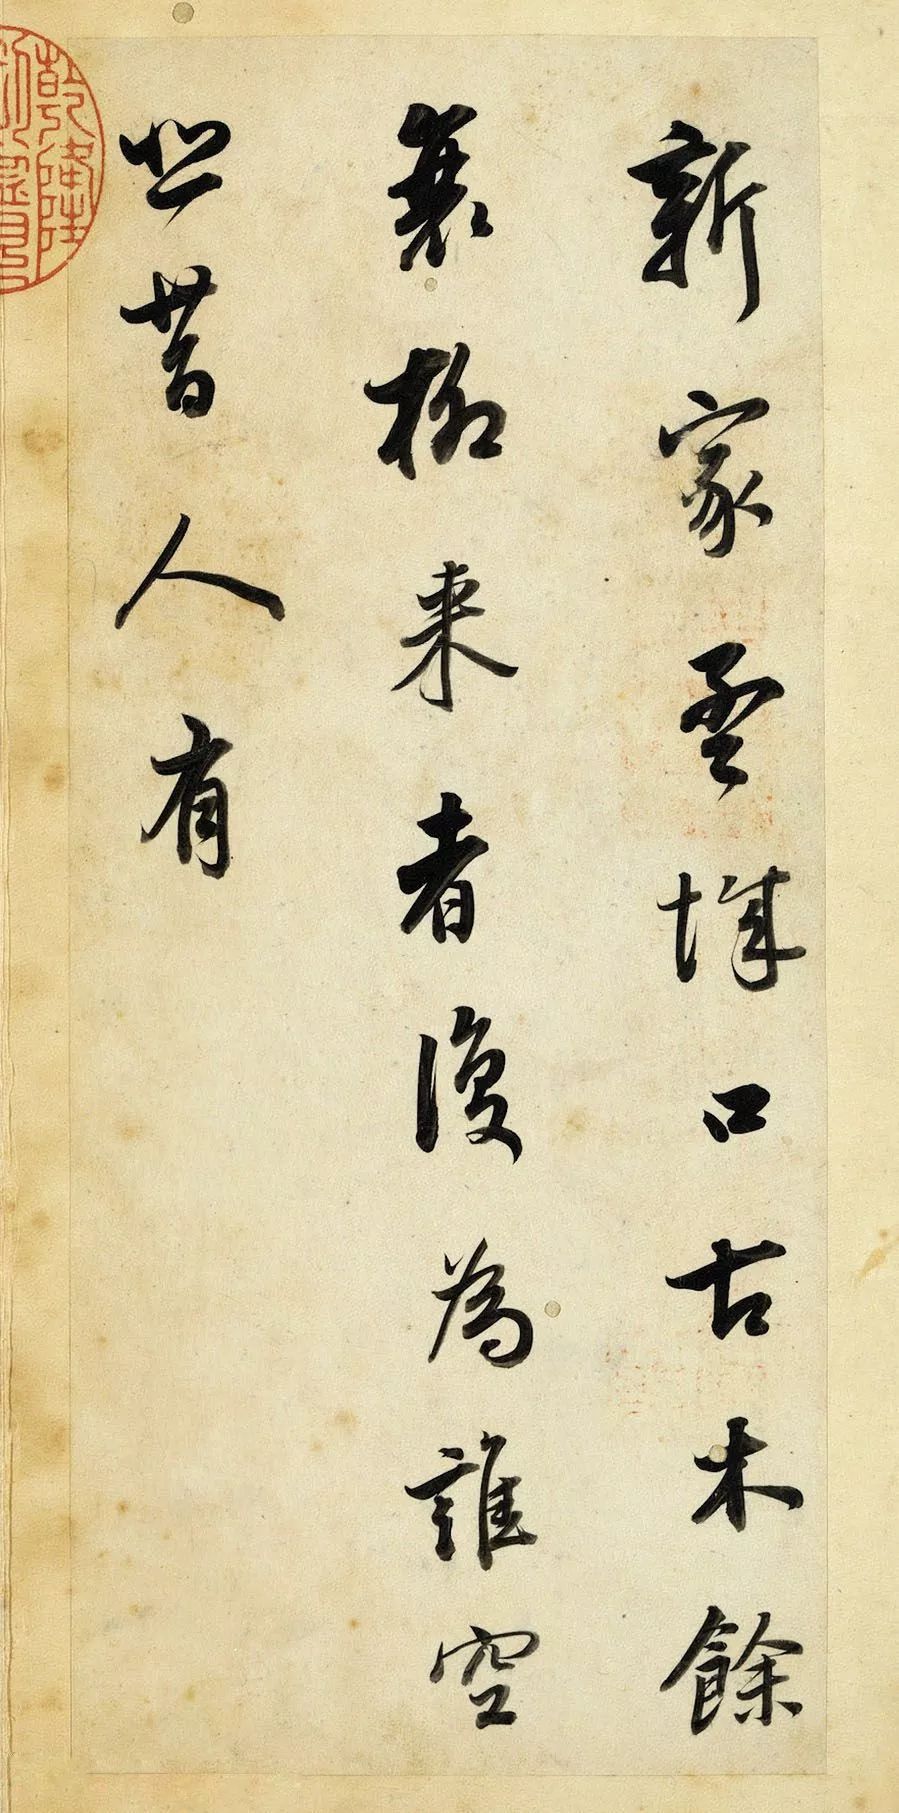 新家孟城口古木餘
衰柳來者復為誰空
悲昔人有
乾隆